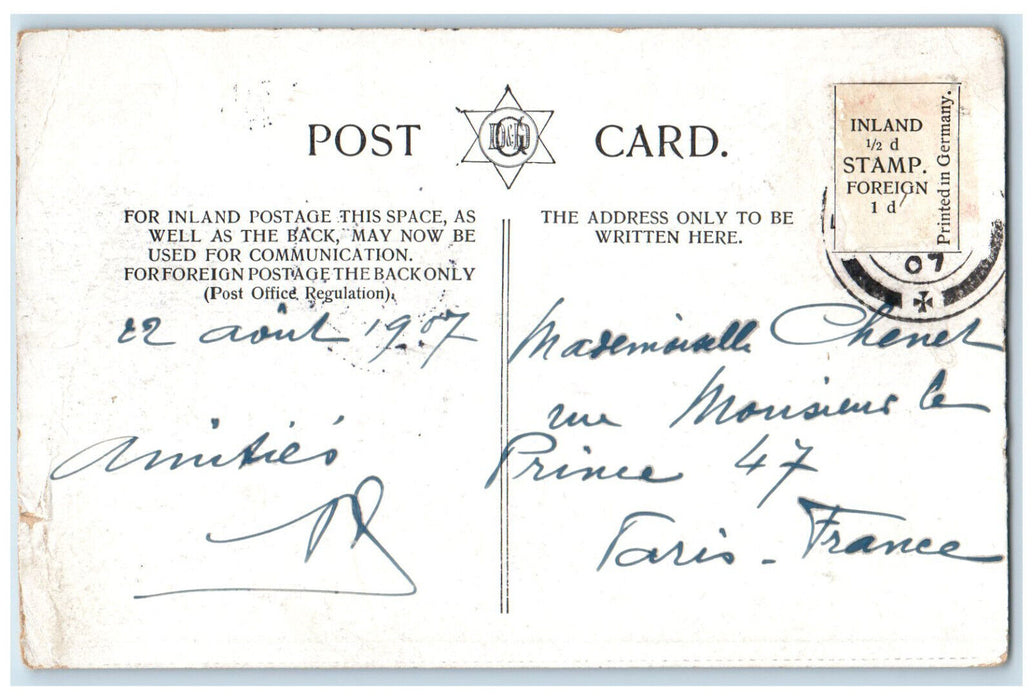 POST CARD.
INLAND
1/2 d
STAMP.
FOREIGN
1 d
Printed in Germany.
07
FOR INLAND POSTAGE THIS SPACE, AS
WELL AS THE BACK, MAY NOW BE
USED FOR COMMUNICATION.
FOR FOREIGN POSTAGE THE BACK ONLY
(Post Office Regulation).
22 août 1907
Amitiés
THE ADDRESS ONLY TO BE
WRITTEN HERE.
Mademoiselle Chenet
rue Monsieur le
Prince 47
Paris - France